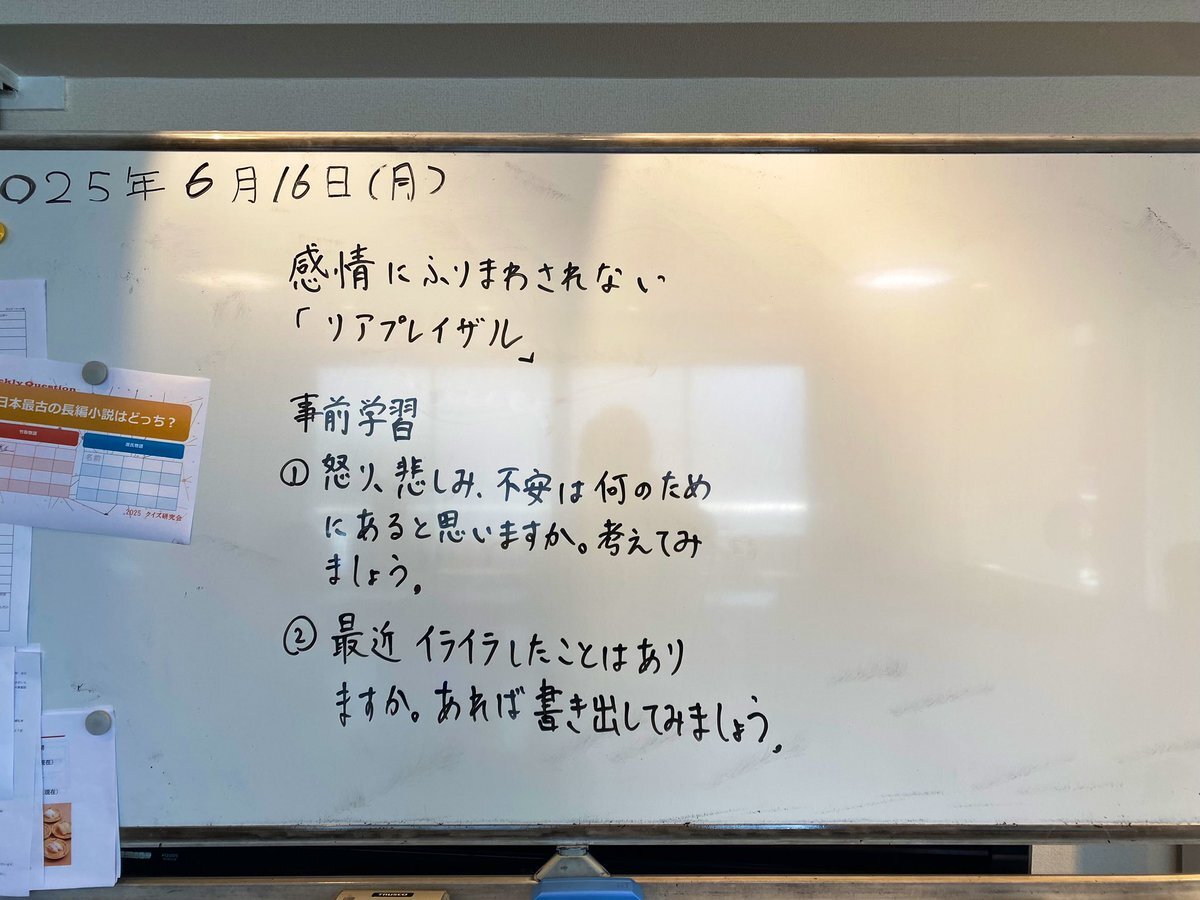 025年 6月16日(月)
感情にふりまわされない
「リアプレイザル」
事前学習
① 怒り、悲しみ、不安は何のため
にあると思いますか。考えてみ
ましょう。
② 最近 イライラしたことはあり
ますか。あれば書き出してみましょう。
ekly Question
日本最古の長編小説はどっち?
竹取物語
源氏物語
名前
2025 クイズ研究会
TRUSCO